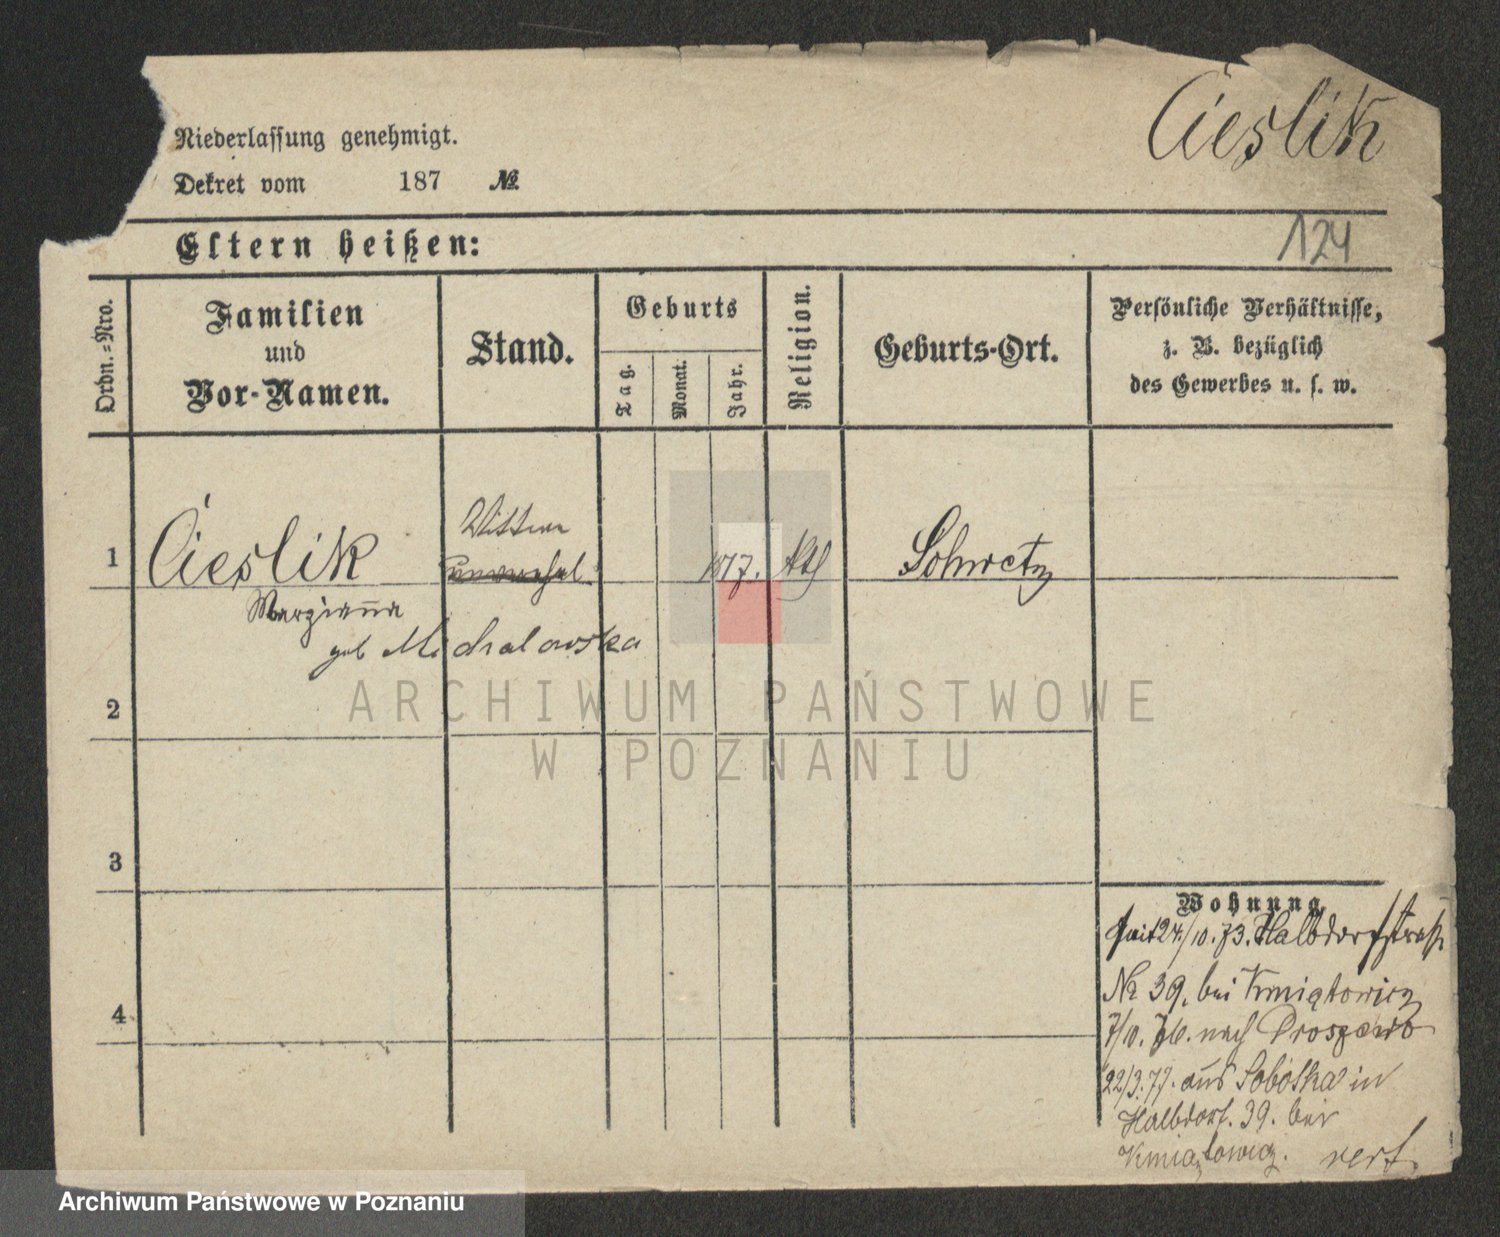 Cieslik
Niederlassung genehmigt.
Dekret vom 187 №
124
Eltern heißen:
Ordn.=Nro.
Familien
und
Vor-Namen.
Stand.
Geburts
Tag.
Monat.
Jahr.
Religion.
Geburts-Ort.
Persönliche Verhältnisse,
z. B. bezüglich
des Gewerbes u. s. w.
1
Cieslik
Wittwe
1817.
Kth
Schwetz
Maryianna
geb Michalowska
2
3
4
Wohnung.
seit 24/10.73. Halbdorfstraße
№ 39. bei Kmiątowicz
7/10. 76. nach
22/3.77. aus Sobótka in
Halbdorf. 39. bei
Kmiątowicz.
ARCHIWUM PAŃSTWOWE
W POZNANIU
Archiwum Państwowe w Poznaniu